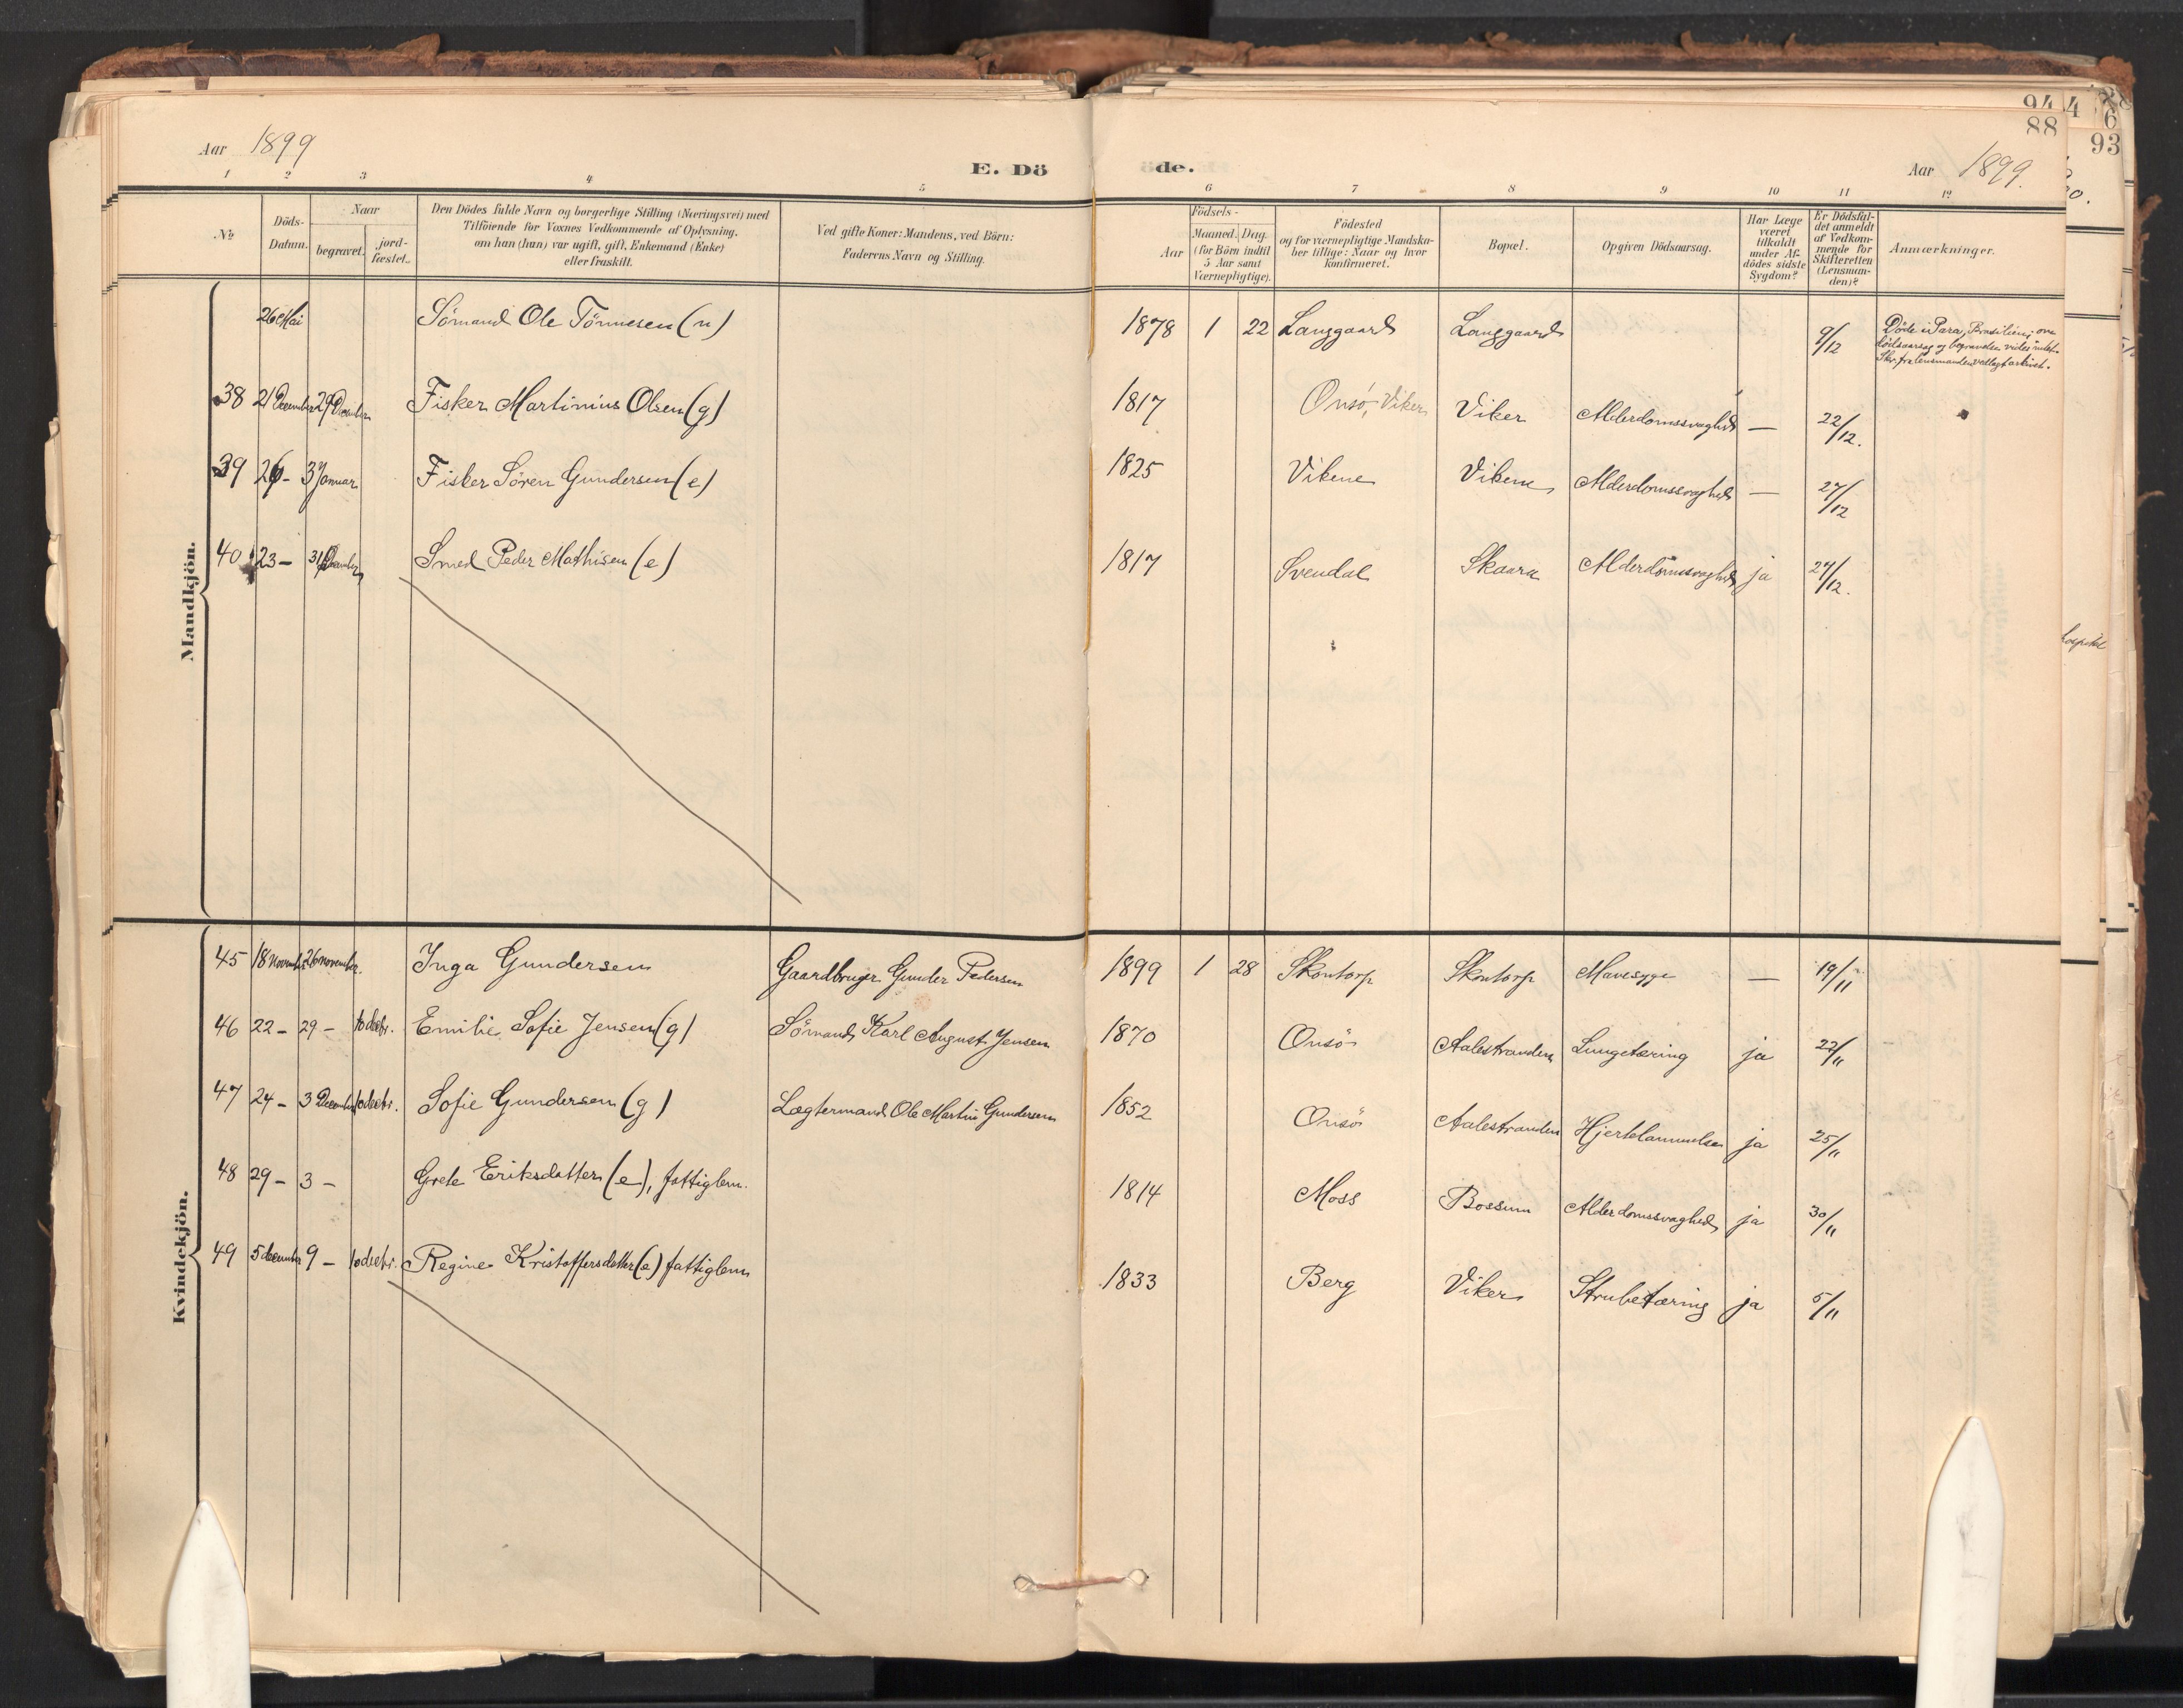 94 4
88 6
93
Aar 1899 E. Dö de. Aar 1899.
1 2 3 4 5 6 7 8 9 10 11 12
№
Döds-
Datum.
Naar
begravet.
jord-
fæstet.
Den Dödes fulde Navn og borgerlige Stilling (Næringsvei) med
Tilföiende for Voxnes Vedkommende af Oplysning,
om han (hun) var ugift, gift, Enkemand (Enke)
eller fraskilt.
Ved gifte Koner: Mandens, ved Börn:
Faderens Navn og Stilling.
Födsels-
Aar
Maaned. Dag.
(for Börn indtil
5 Aar samt
Værnepligtige).
Födested
og for værnepligtige Mandska-
ber tillige: Naar og hvor
konfirmeret.
Bopæl.
Opgiven Dödsaarsag.
Har Læge
været
tilkaldt
under Af-
dödes sidste
Sygdom?
Er Dödsfal-
det anmeldt
af Vedkom-
mende for
Skifteretten
(Lensman-
den)?
Anmærkninger.
Mandkjön.
26 Mai Sömand Ole Tönnesen (u) 1878 1 22 Langgaard Langgaard 9/12 Döde i Para, Brasilien; om
dödsaarsag og begravelse vides intet.
Skr. fra lensmanden vedlagt arkivet.
38 21 December 29 December Fisker Martinius Olsen (g) 1817 Onsö, Viker Viker Alderdomssvaghed — 22/12.
39 26 - 3 Januar Fisker Sören Gundersen (e) 1825 Vikene Vikene Alderdomssvaghed — 27/12
40 23 - 31 December Smed Peder Mathisen (e) 1817 Svendal Skaara Alderdomssvaghed ja 27/12.
Kvindekjön.
45 18 november 26 november. Inga Gundersen Gaardbruger Gunder Pedersen 1899 1 28 Skontorp Skontorp Mavesyge — 19/11
46 22 - 29 - 10 decbr. Emilie Sofie Jensen (g) Sömand Karl August Jensen 1870 Onsö Aalestranden Lungetæring ja 22/11
47 24 - 3 December 10 decbr. Sofie Gundersen (g) Lægtermand Ole Martin Gundersen 1852 Onsö Aalestranden Hjertelammelse ja 25/11
48 29 - 3 - Grete Eriksdatter (e), fattiglem. 1814 Moss Bossum Alderdomssvaghed ja 30/11
49 5 december 9 - 10 decbr. Regine Kristoffersdatter (e) fattiglem 1833 Berg Viker Strubetæring ja 5/11